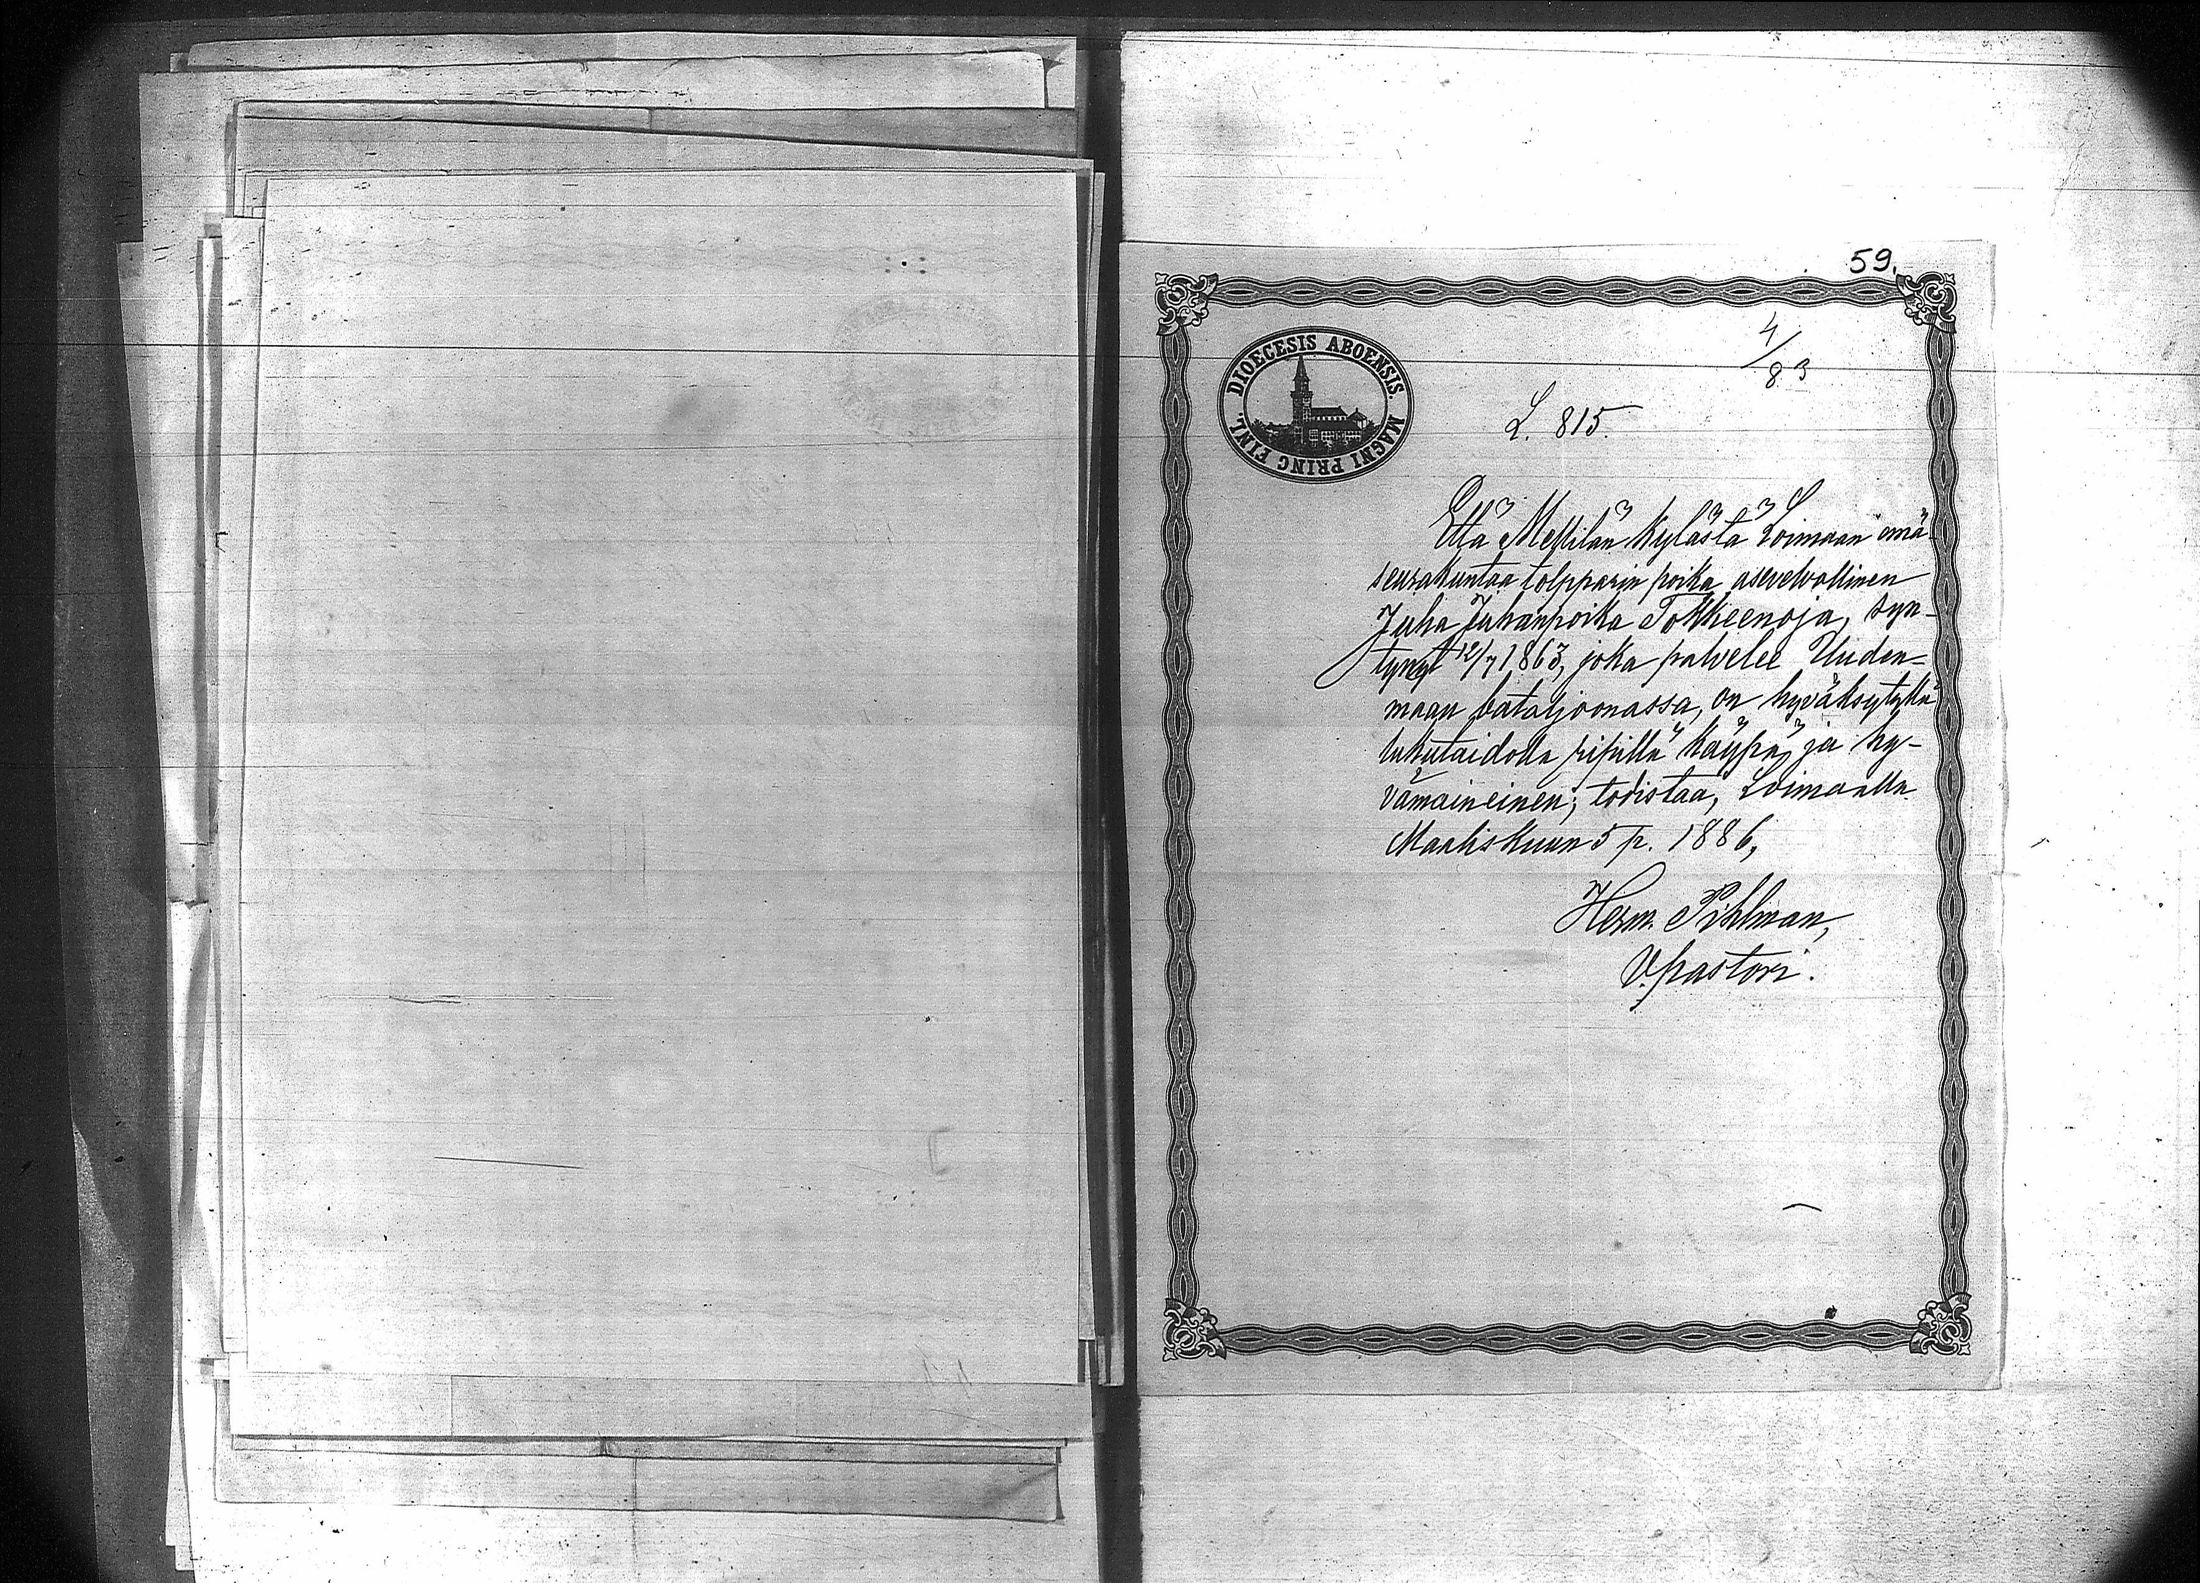 59.
4/83
DIOECESIS ABOENSIS. MAGNI PRINC FINL.
L. 815.
Että Mellilän kylästä Loimaan emä-
seurakuntaa tolpparin poika asevelvollinen
Juha Juhanpoika Tokkeenoja, syn-
tynyt 12/7 1863, joka palvelee Uuden-
maan bataljoonassa, on hyväksytyllä
lukutaidolla ripillä käypä ja hy-
vämaineinen; todistaa, Loimaalla
Maaliskuun 5 p. 1886,
Herm. Pihlman,
V. pastori.